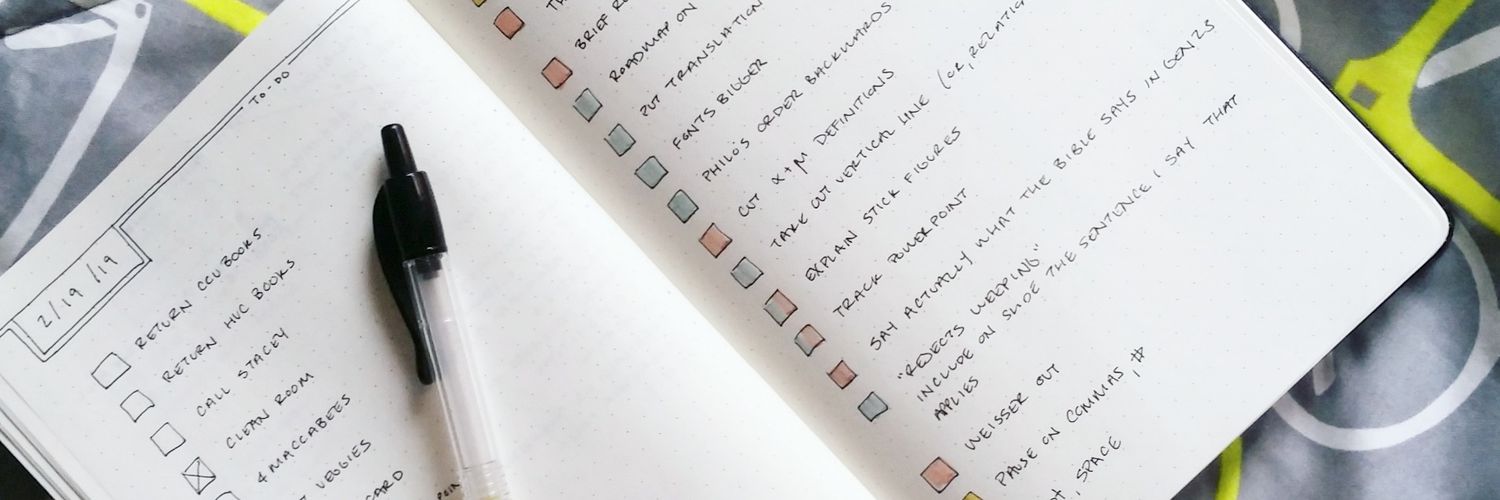 TO-DO
2/19/19
RETURN CCU BOOKS
RETURN HUC BOOKS
CALL STACEY
CLEAN ROOM
4 MACCABEES
VEGGIES
CARD
BRIEF
ROADMAP ON
PUT TRANSLATION
FONTS BIGGER
PHILO'S ORDER BACKWARDS
CUT α+M DEFINITIONS
TAKE OUT VERTICAL LINE (OR, RELATIO
EXPLAIN STICK FIGURES
TRACK POWERPOINT
SAY ACTUALLY WHAT THE BIBLE SAYS IN
"REJECTS WEEPING"
INCLUDE ON SLIDE THE SENTENCE I SAY THAT
APPLIES
WEISSER OUT
PAUSE ON COMMAS, #
, SPACE